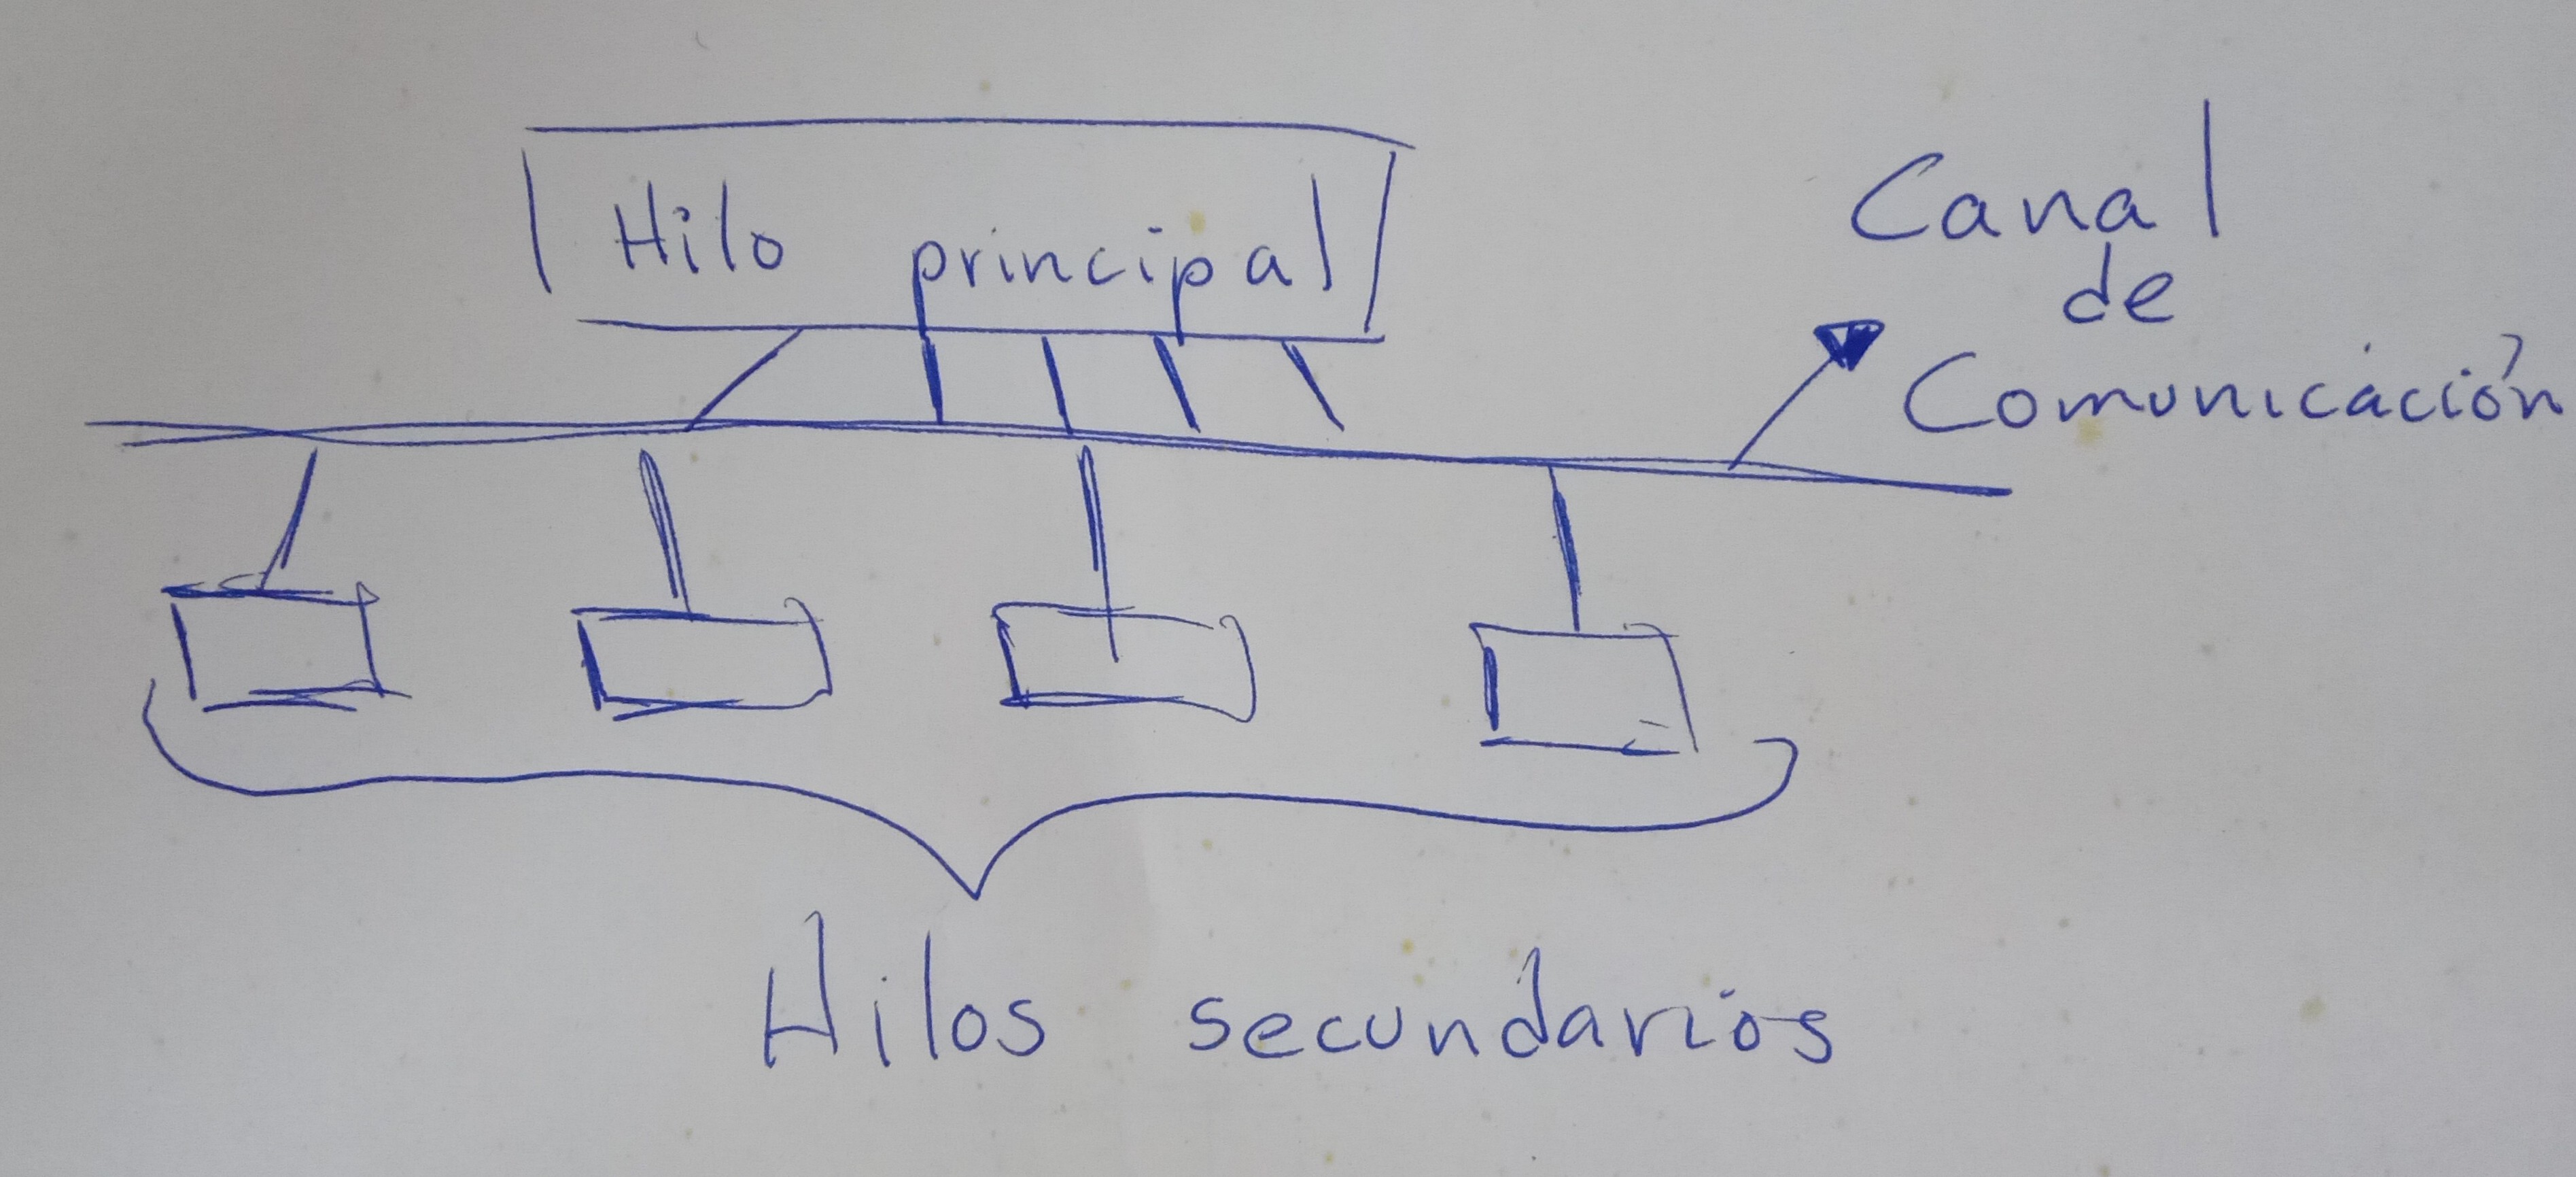 Hilo principal
Canal
de
Comunicación
Hilos secundarios